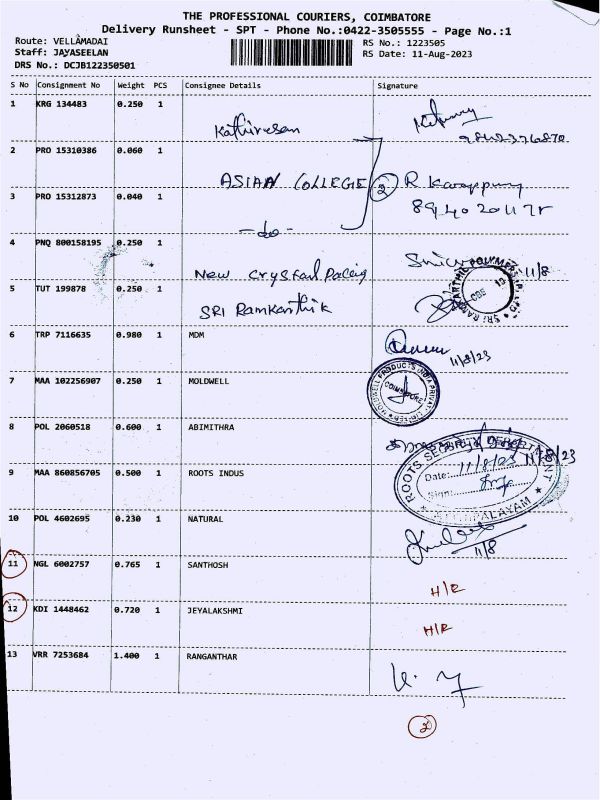 THE PROFESSIONAL COURIERS, COIMBATORE
Delivery Runsheet - SPT - Phone No.:0422-3505555 - Page No.:1
Route: VELLAMADAI
Staff: JAYASEELAN
DRS No.: DCJB122350501
RS No.: 1223505
RS Date: 11-Aug-2023
S No Consignment No Weight PCS Consignee Details Signature
1 KRG 134483 0.250 1
Kathiresan
2 PRO 15310386 0.060 1
ASIAN COLLEGE 2 R
3 PRO 15312873 0.040 1
-do-
4 PNQ 800158195 0.250 1
New Crystal 11/8
5 TUT 199878 0.250 1
SRI Ramkarthik
6 TRP 7116635 0.980 1 MDM
11/8/23
7 MAA 102256907 0.250 1 MOLDWELL
MOLDWELL PRODUCTS INDIA PRIVATE LIMITED
COIMBATORE
8 POL 2060518 0.600 1 ABIMITHRA
11/8/23
ROOTS SECURITY DEPARTMENT
Date: 11/8/23
Sign:
9 MAA 860856705 0.500 1 ROOTS INDUS
10 POL 4602695 0.230 1 NATURAL
11/8
11 NGL 6002757 0.765 1 SANTHOSH
H/R
12 KDI 1448462 0.720 1 JEYALAKSHMI
H/R
13 VRR 7253684 1.400 1 RANGANTHAR
2